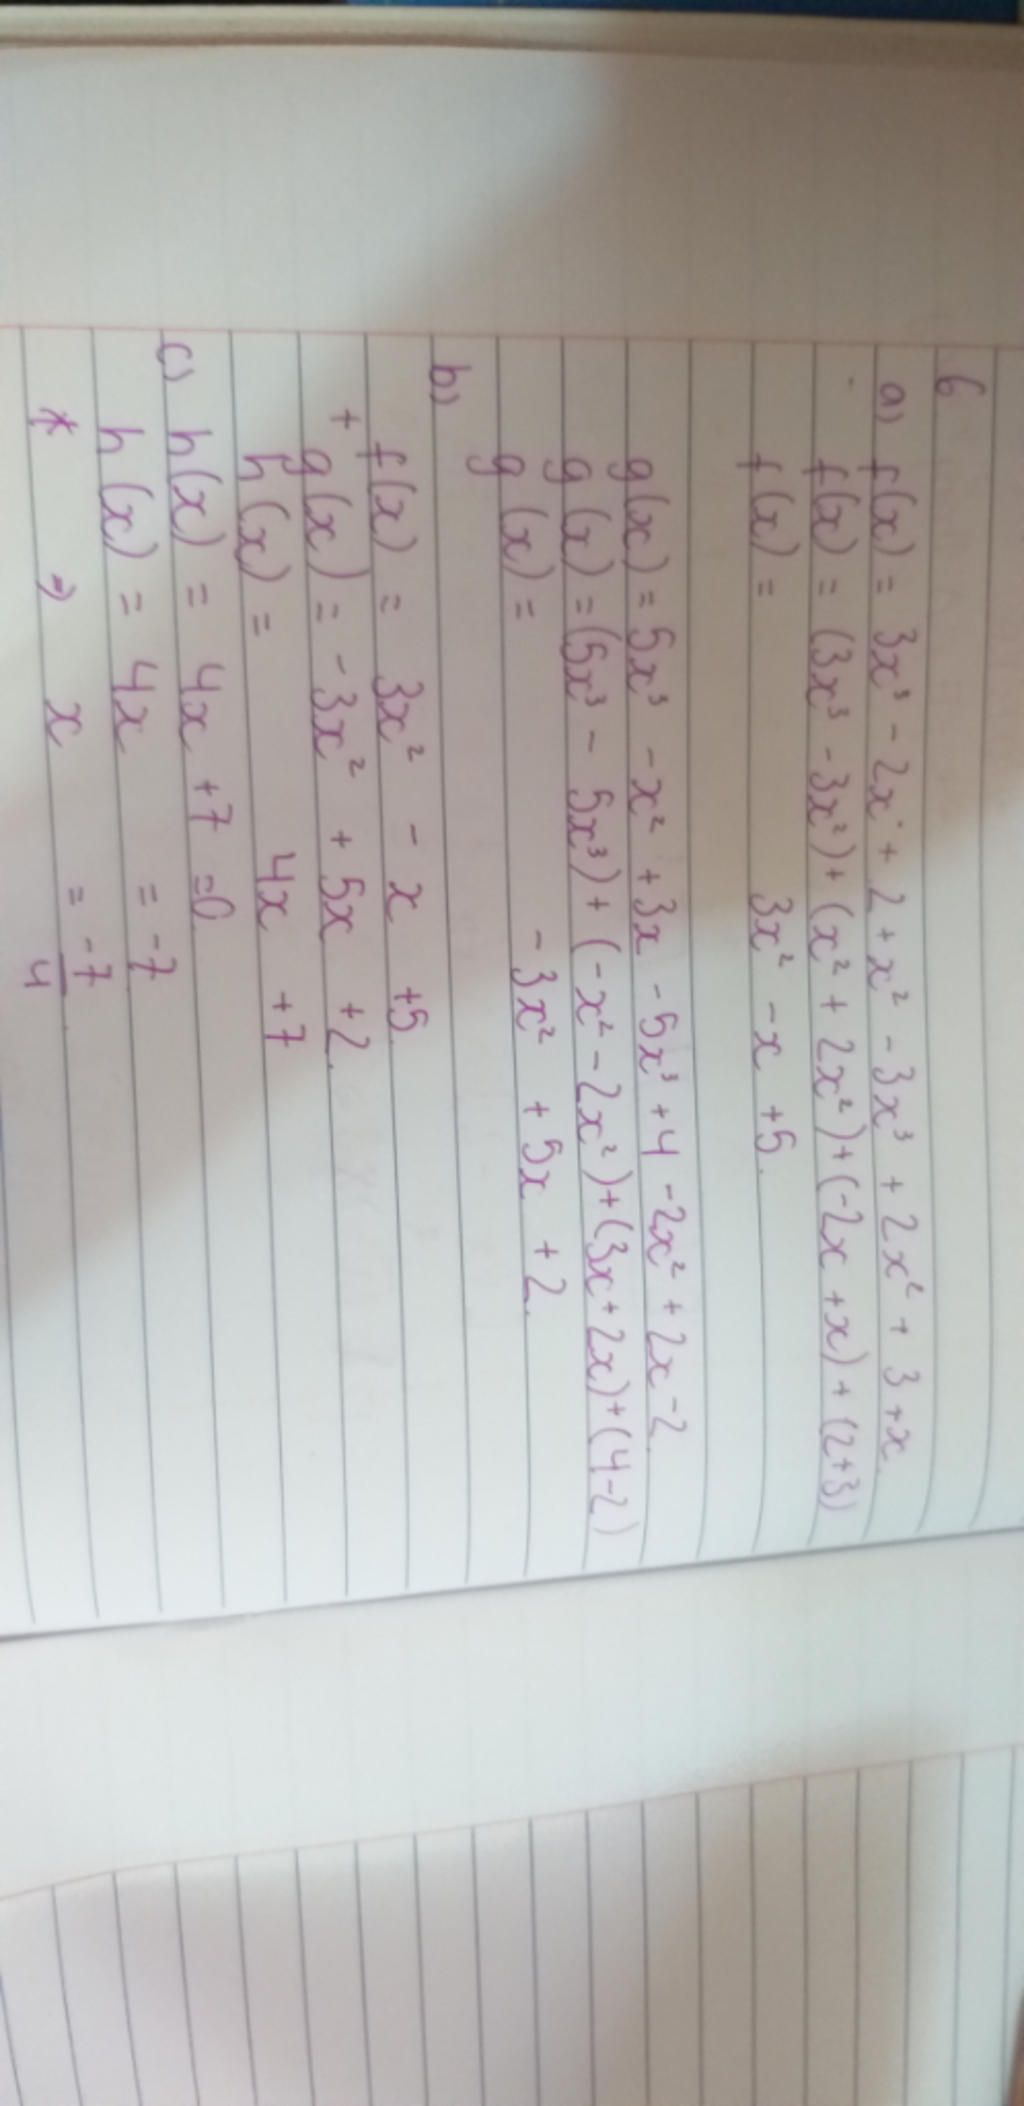 6
a) f(x) = 3x³ - 2x + 2 + x² - 3x³ + 2x² + 3 + x
f(x) = (3x³ - 3x²) + (x² + 2x²) + (-2x + x) + (2+3)
f(x) = 3x² - x + 5.
g(x) = 5x³ - x² + 3x - 5x³ + 4 - 2x² + 2x - 2
g(x) = (5x³ - 5x³) + (-x² - 2x²) + (3x + 2x) + (4-2)
g(x) = - 3x² + 5x + 2.
b) f(x) = 3x² - x + 5
+ g(x) = - 3x² + 5x + 2.
h(x) = 4x + 7
c) h(x) = 4x + 7 = 0
h(x) = 4x = -7
* ⇒ x = -7/4